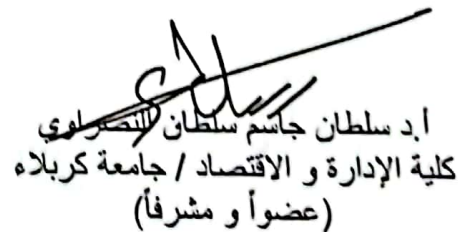 أ.د سلطان جاسم سلطان النصراوي
كلية الإدارة و الاقتصاد / جامعة كربلاء
(عضواً و مشرفاً)